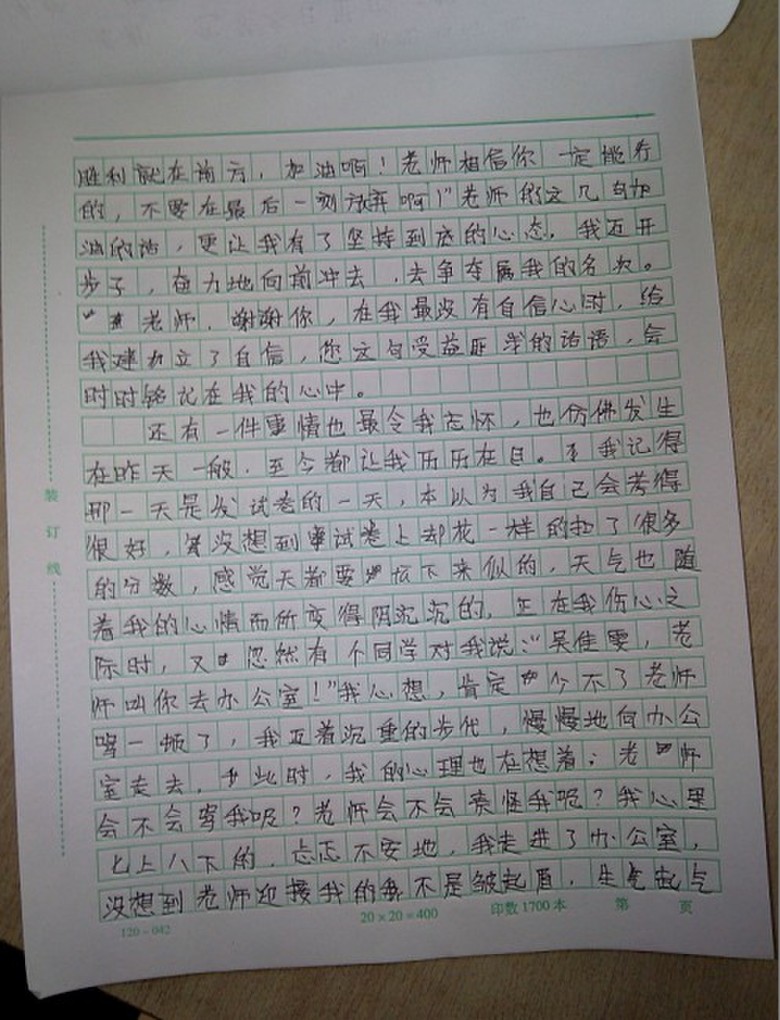 胜利就在前方，加油啊！老师相信你一定能行
的，不要在最后一刻放弃啊！"老师的这几句加
油的话，更让我有了坚持到底的心态。我迈开
步子，奋力地向前冲去，去争夺属我的名次。
"老师，谢谢你，在我最没有自信心时，给
我建立了自信，您这句受益匪浅的话语，会
时时铭记在我的心中。
还有一件事情也最令我忘怀，也仿佛发生
在昨天一般，至今都让我历历在目。我记得
那一天是发试卷的一天，本以为我自己会考得
很好，没想到试卷上却花一样的扣了很多
的分数，感觉天都要坛下来似的，天气也随
着我的心情而所变得阴沉沉的，正在我伤心之
际时，又忽然有个同学对我说："吴佳雯，老
师叫你去办公室！"我心想，肯定少不了老师
骂一顿了，我迈着沉重的步伐，慢慢地向办公
室走去，此时，我的心理也在想着：老师
会不会骂我呢？老师会不会责怪我呢？我心里
七上八下的，忐忑不安地，我走进了办公室，
没想到老师迎接我的不是皱起眉，生气起气
装
订
线
120－042
20×20＝400
印数1700本
第 页